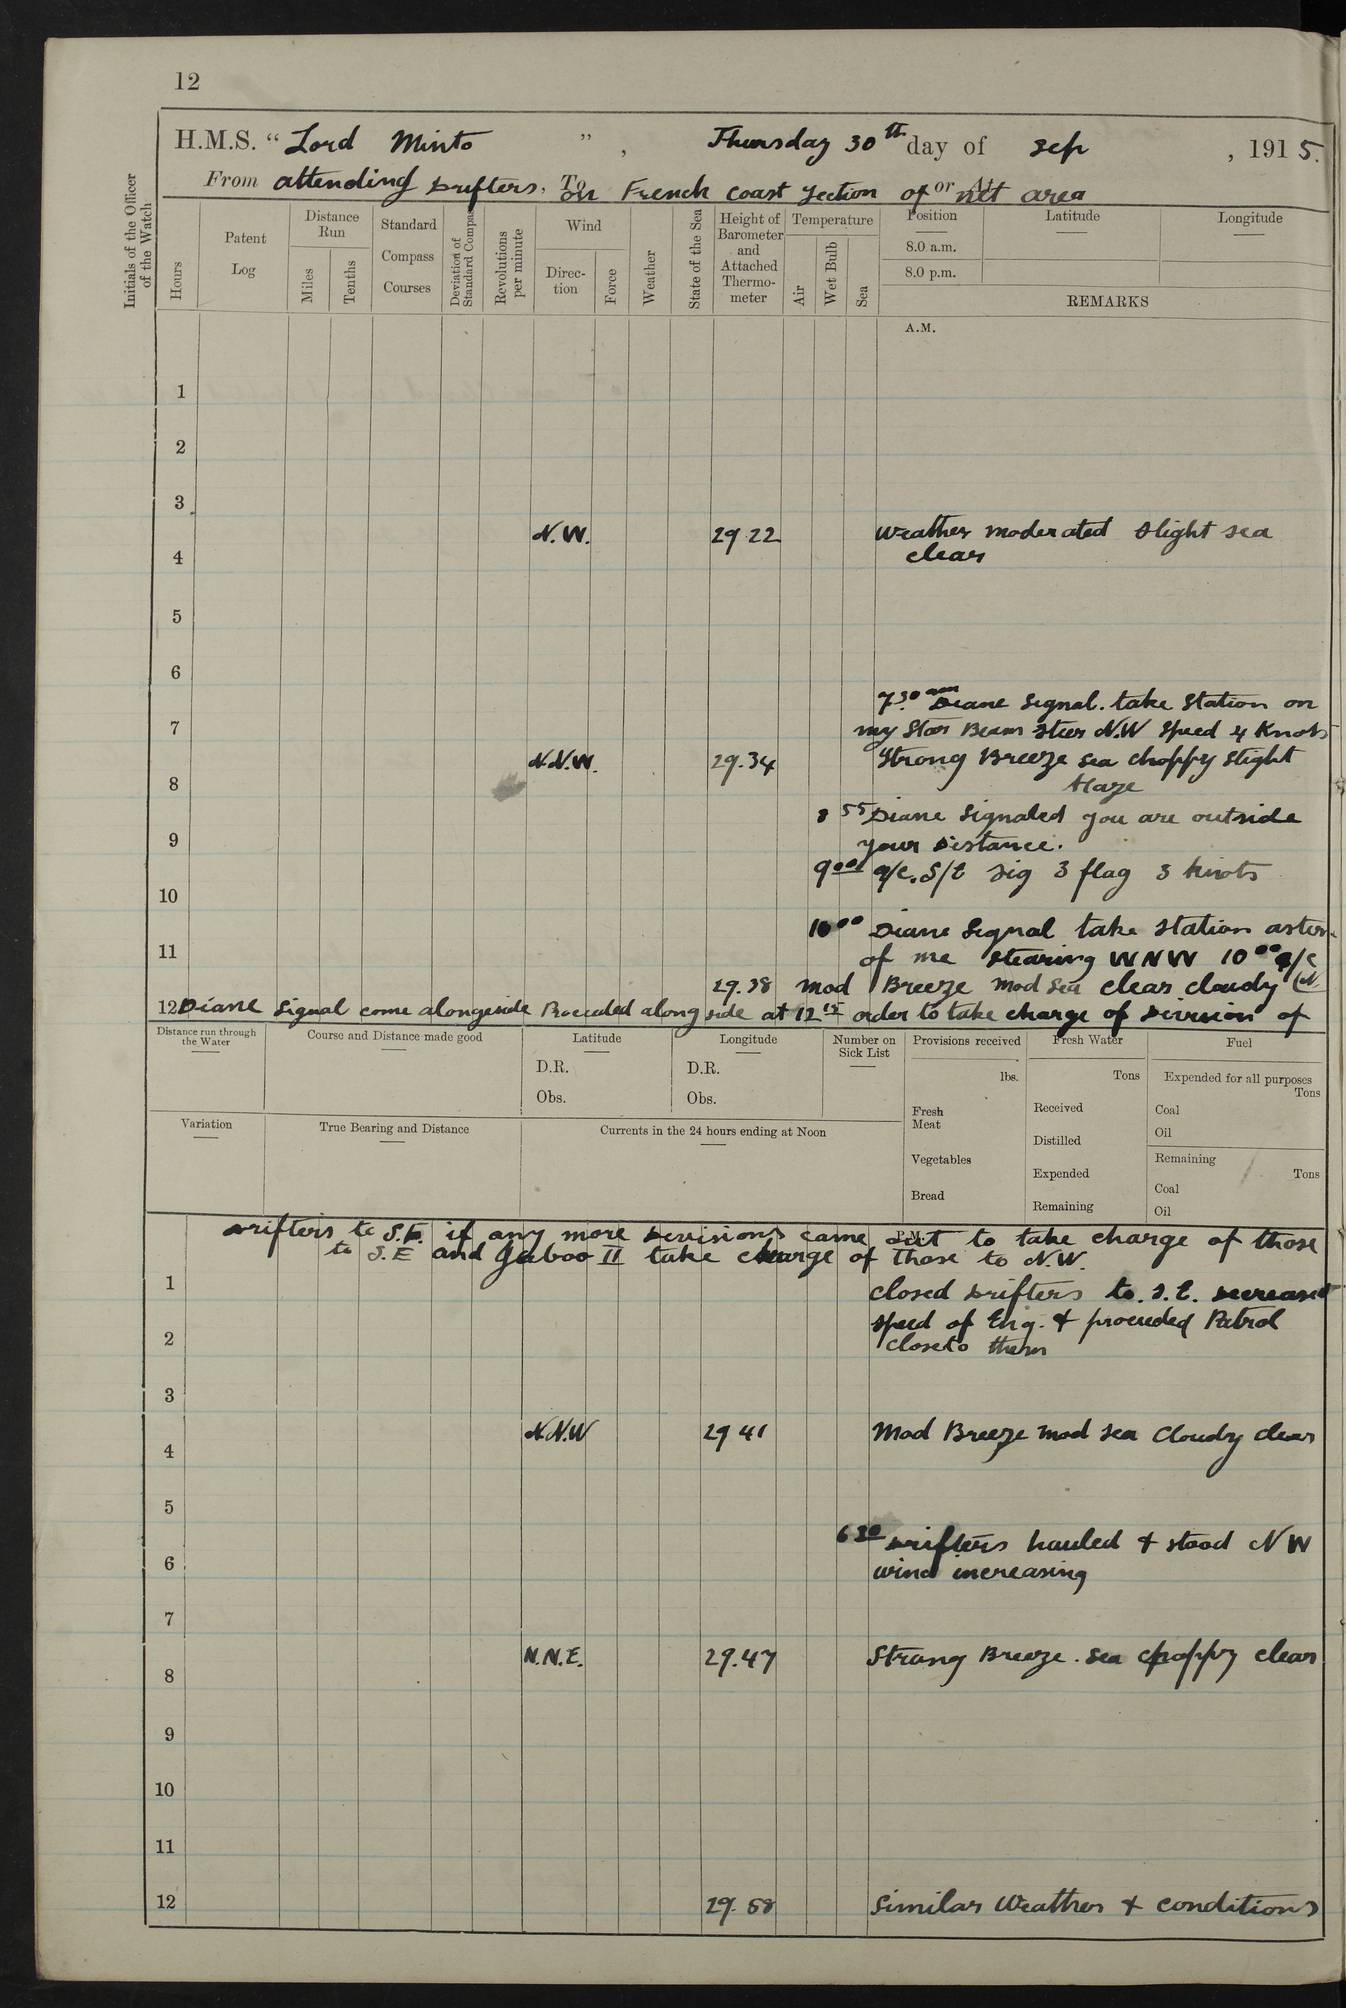 12
H.M.S. “ Lord Minto ” , Thursday 30th day of Sep , 1915.
From attending Drifters. To on French Coast Section of or At net area
Initials of the Officer of the Watch
Hours
Patent Log
Distance Run
Miles
Tenths
Standard Compass Courses
Deviation of Standard Compass
Revolutions per minute
Wind
Direction
Force
Weather
State of the Sea
Height of Barometer and Attached Thermometer
Temperature
Air
Wet Bulb
Sea
Position
Latitude
Longitude
8.0 a.m.
8.0 p.m.
REMARKS
A.M.
1
2
3
N.W. 29.22 Weather moderated slight sea
4 clear
5
6
7.30 am Diane Signal. take Station on
7 my Star Beam steer N.W Speed 4 Knots
N.N.W. 29.34 Strong Breeze sea choppy slight
8 Haze
8 55 Diane Signaled you are outside
9 your Distance.
9 00 a/c. S/E sig 3 flag 3 knots
10
10 00 Diane Signal take Station astern
11 of me stearing WNW 10 00 a/c
29.38 mod Breeze mod sea clear cloudy
12 Diane Signal come alongside Proceeded along side at 12 15 order to take charge of Division of
Distance run through the Water
Course and Distance made good
Latitude
D.R.
Obs.
Longitude
D.R.
Obs.
Number on Sick List
Provisions received
lbs.
Fresh Meat
Vegetables
Bread
Fresh Water
Tons
Received
Distilled
Expended
Remaining
Fuel
Expended for all purposes
Tons
Coal
Oil
Remaining
Tons
Coal
Oil
Variation
True Bearing and Distance
Currents in the 24 hours ending at Noon
P.M.
Drifters to S.E. if any more Divisions came out to take charge of those
to S.E and Gaboo II take charge of those to N.W.
1 closed Drifters to S.E. Decreased
speed of Eng. & proceeded Patrol
2 close to them
3
N.N.W 29 41 Mod Breeze mod sea Cloudy clear
4
5
6 30 Drifters hauled & stood NW
6 wind increasing
7
N.N.E. 29.47 Strong Breeze. sea choppy clear
8
9
10
11
12 29.58 Similar Weather & conditions